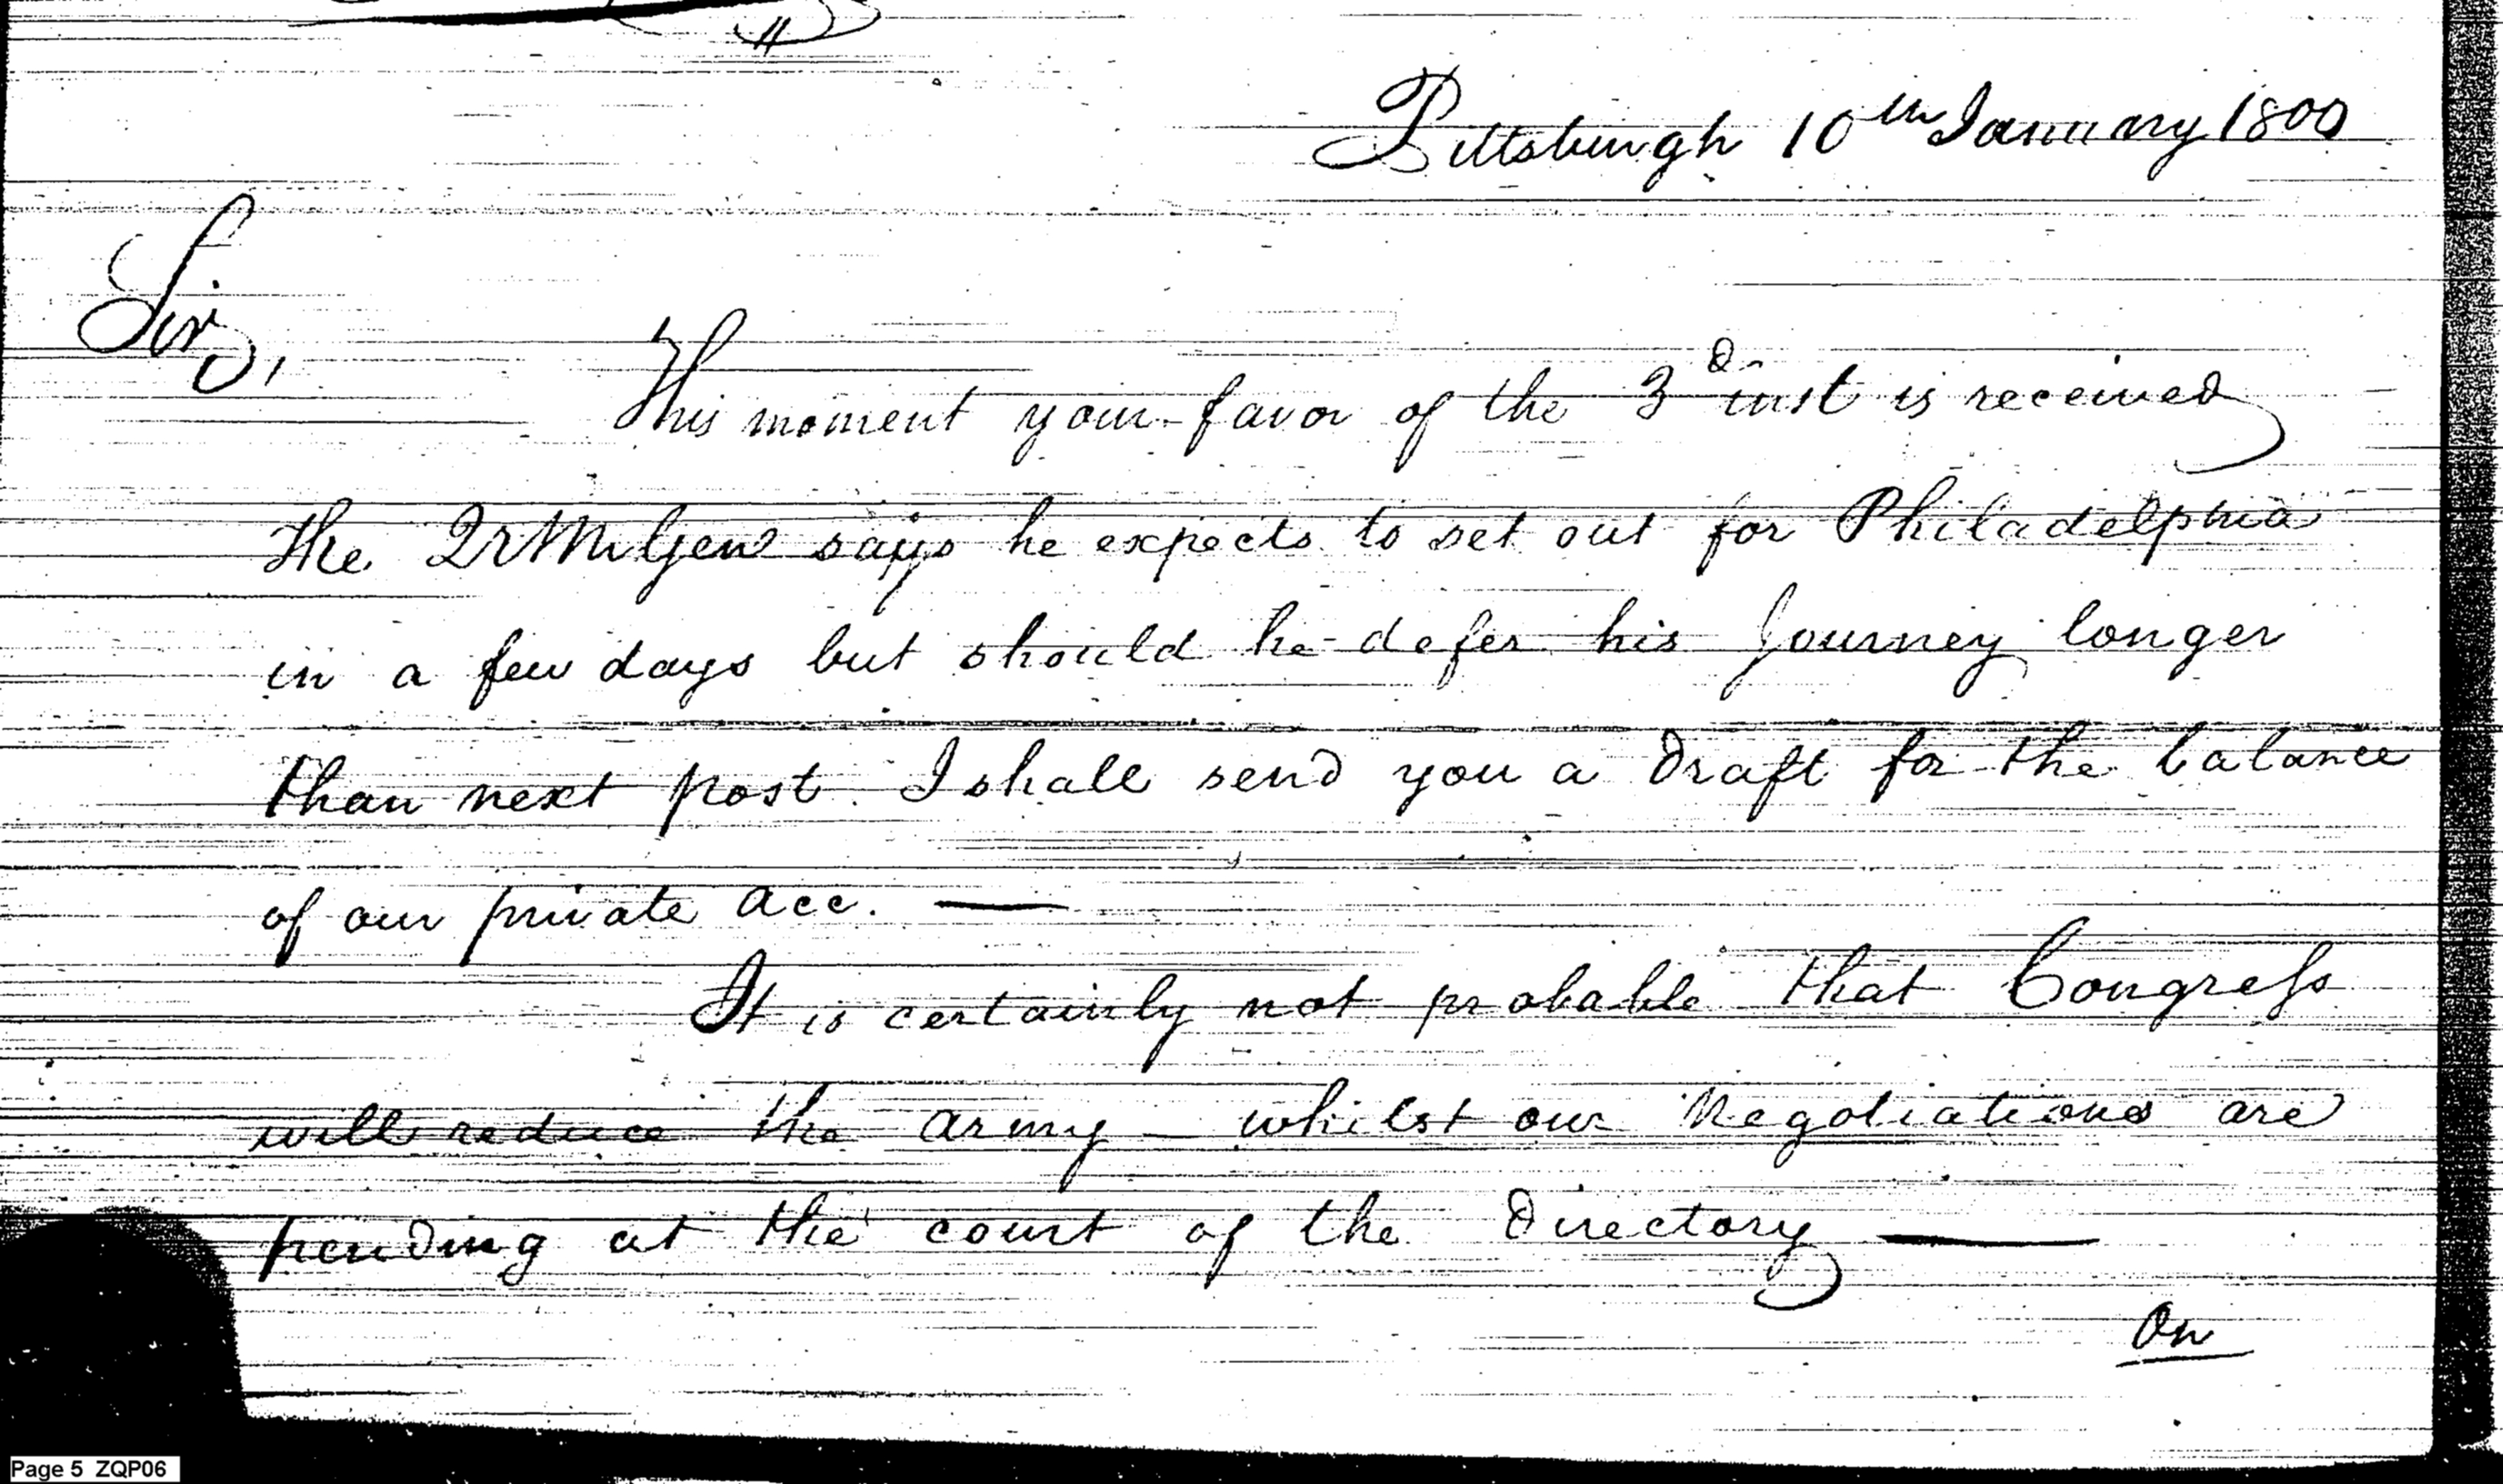 Pittsburgh 10th January 1800
Sir,
This moment your favor of the 3d inst is received
the QrMrGenl says he expects to set out for Philadelphia
in a few days but should he defer his Journey longer
than next post. I shall send you a draft for the balance
of our private acc. —
It is certainly not probable that Congress
will reduce the army – whilst our Negotiations are
pending at the court of the Directory —
On
Page 5 ZQP06